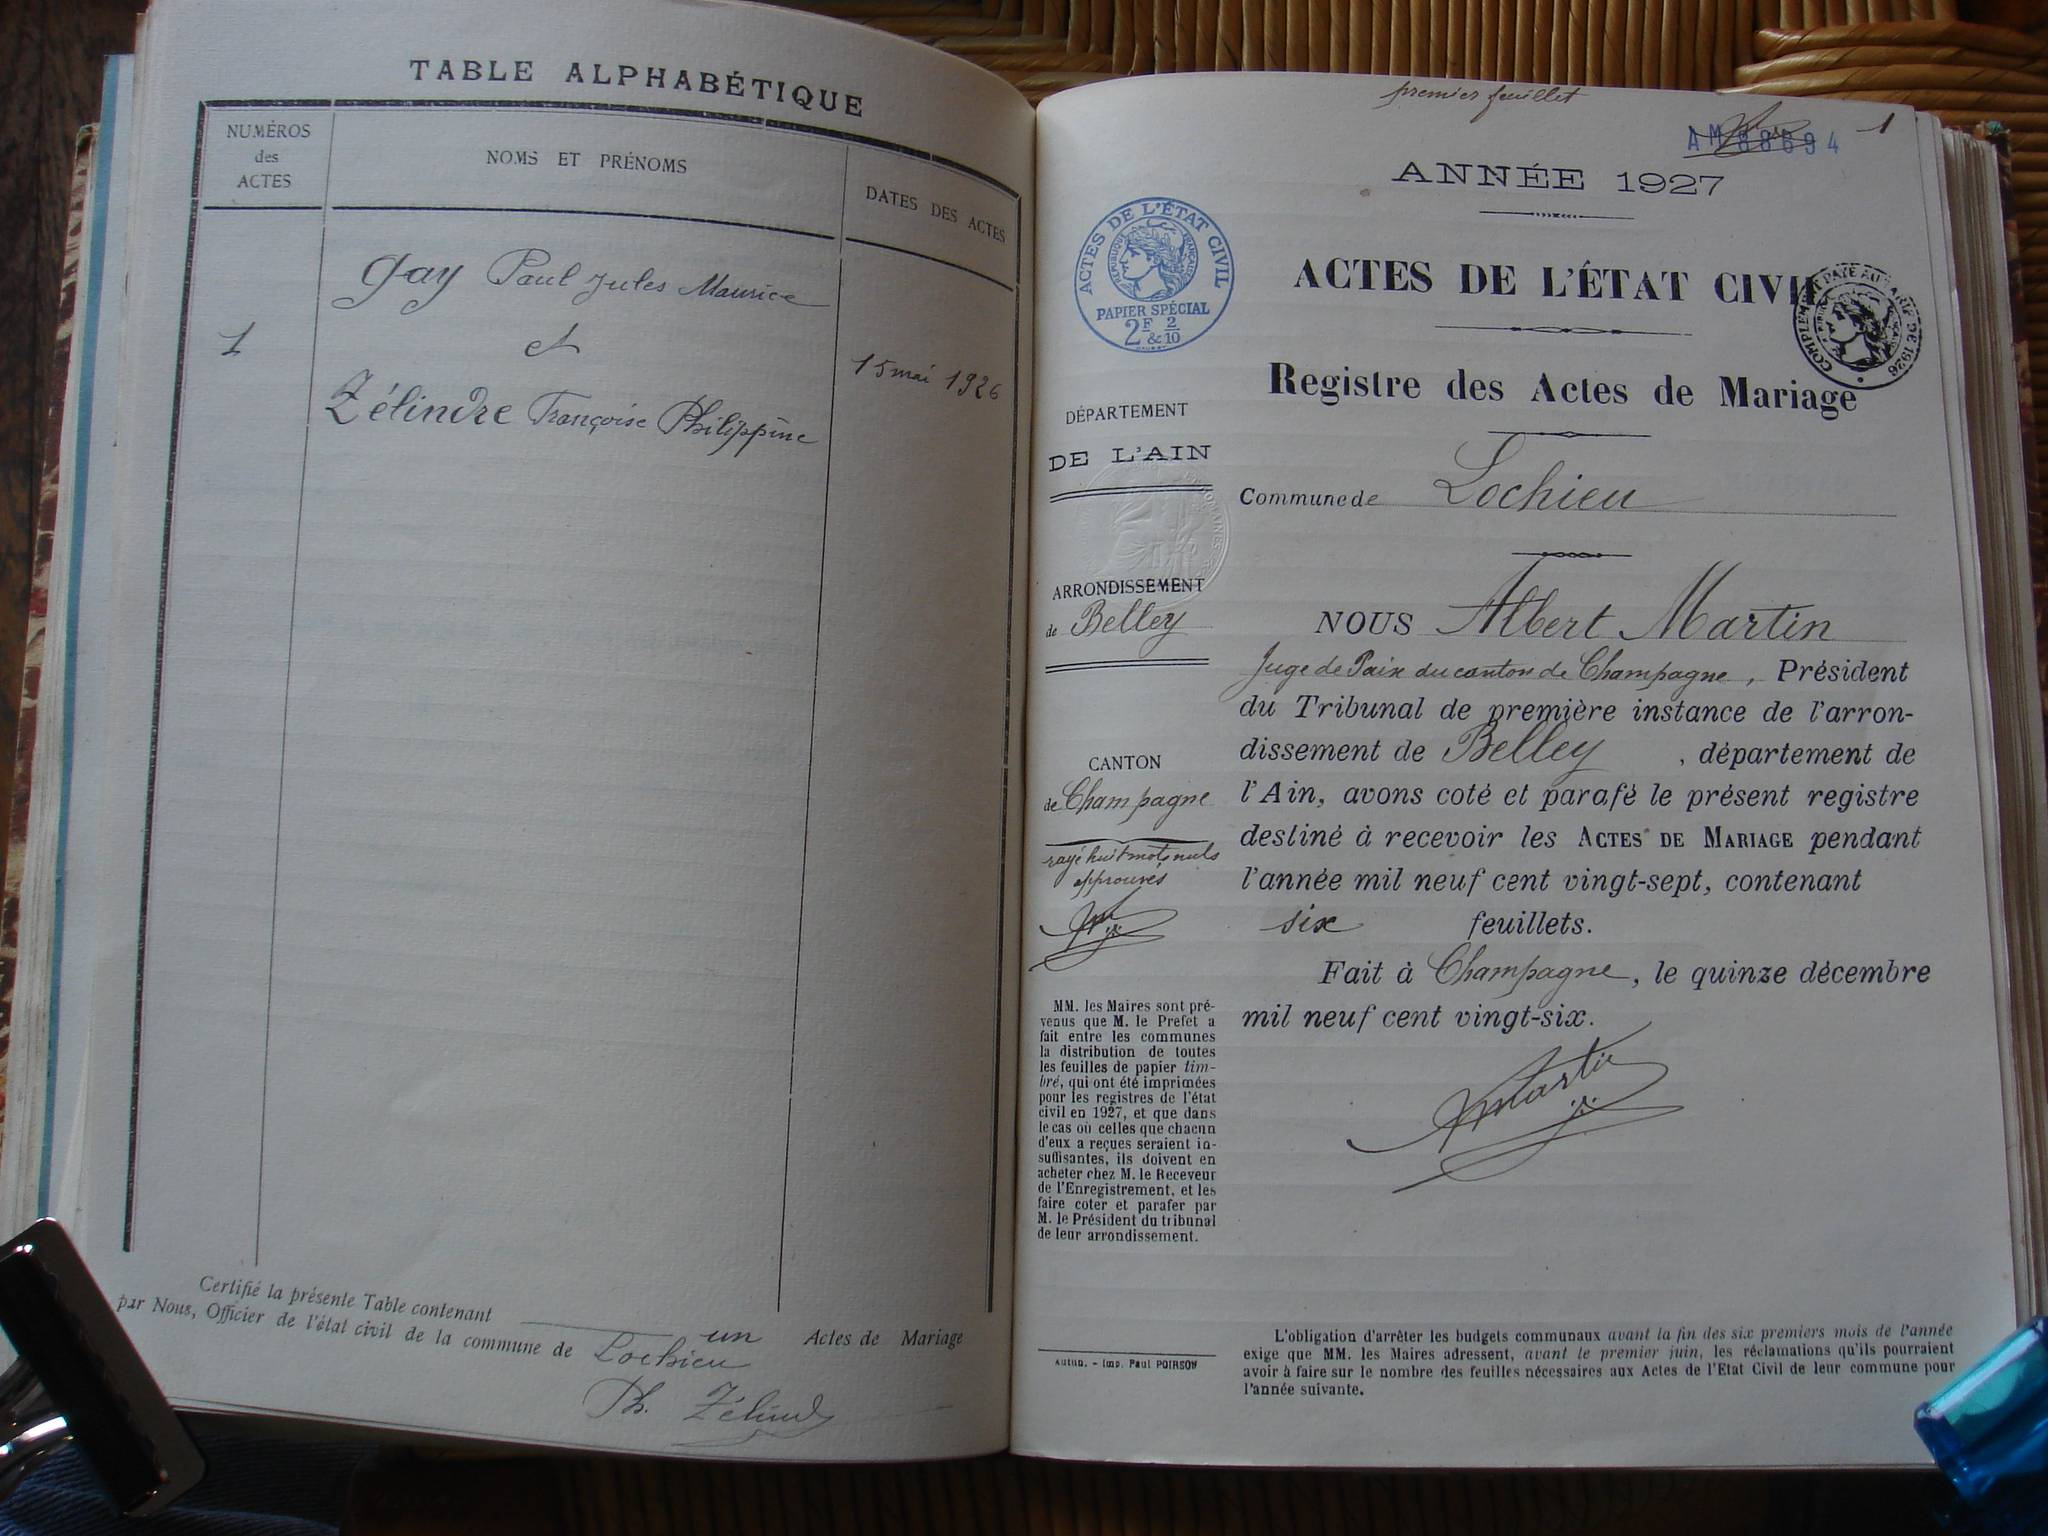 TABLE ALPHABÉTIQUE
NUMÉROS
des
ACTES
NOMS ET PRÉNOMS
DATES DES ACTES
Gay Paul Jules Maurice
1
et
15 mai 1926
Zélindre Françoise Philippine
Certifié la présente Table contenant un Actes de Mariage
par Nous, Officier de l'état civil de la commune de Lochieu
Ph. Zélind
premier feuillet
AM 88694
1
ANNÉE 1927
ACTES DE L'ÉTAT CIVIL
RÉPUBLIQUE FRANÇAISE
PAPIER SPÉCIAL
2F & 2/10
ACTES DE L'ÉTAT CIVIL
COMPLÉMENT PAYÉ AU TARIF DE 1926
Registre des Actes de Mariage
DÉPARTEMENT
DE L'AIN
Commune de Lochieu
ARRONDISSEMENT
de Belley
CANTON
de Champagne
rayé huit mots nuls
approuvés
NOUS Albert Martin
Juge de Paix du canton de Champagne, Président
du Tribunal de première instance de l'arron-
dissement de Belley, département de
l'Ain, avons coté et parafé le présent registre
destiné à recevoir les ACTES DE MARIAGE pendant
l'année mil neuf cent vingt-sept, contenant
six feuillets.
Fait à Champagne, le quinze décembre
mil neuf cent vingt-six.
AMartin
MM. les Maires sont pré-
venus que M. le Préfet a
fait entre les communes
la distribution de toutes
les feuilles de papier tim-
bré, qui ont été imprimées
pour les registres de l'état
civil en 1927, et que dans
le cas où celles que chacun
d'eux a reçues seraient in-
suffisantes, ils doivent en
acheter chez M. le Receveur
de l'Enregistrement, et les
faire coter et parafer par
M. le Président du tribunal
de leur arrondissement.
Autun. - Imp. Paul POIRSON
L'obligation d'arrêter les budgets communaux avant la fin des six premiers mois de l'année
exige que MM. les Maires adressent, avant le premier juin, les réclamations qu'ils pourraient
avoir à faire sur le nombre des feuilles nécessaires aux Actes de l'Etat Civil de leur commune pour
l'année suivante.